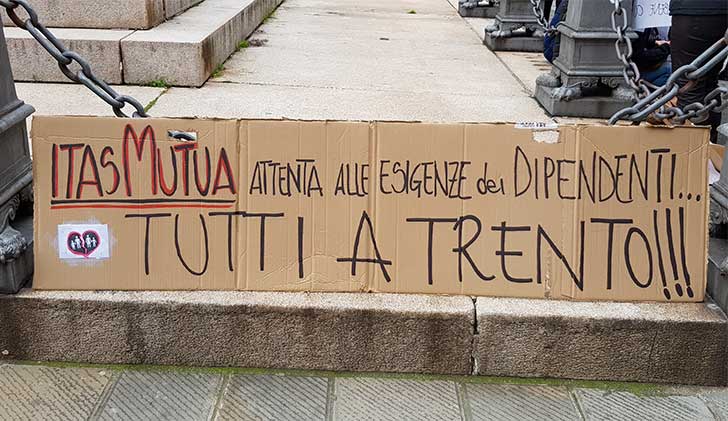 ITAS MUTUA ATTENTA ALLE ESIGENZE dei DIPENDENTI...
TUTTI A TRENTO!!!